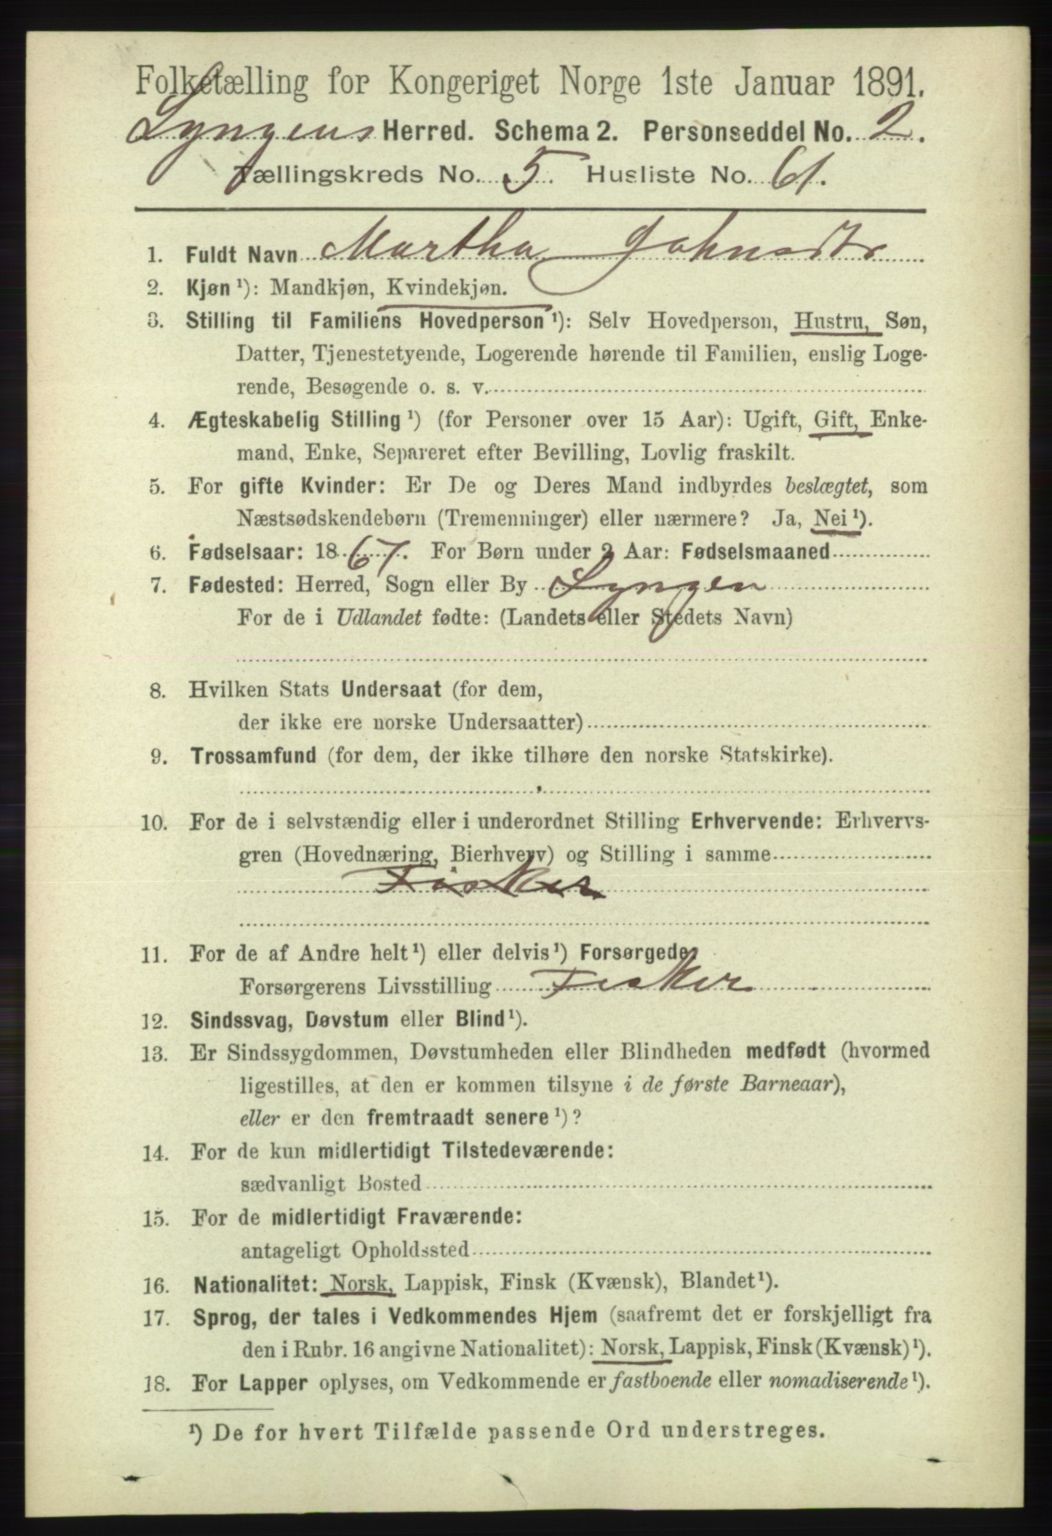 Folketælling for Kongeriget Norge 1ste Januar 1891.
Lyngens Herred. Schema 2. Personseddel No. 2.
Tællingskreds No. 5. Husliste No. 61.
1. Fuldt Navn Martha Johnsdtr
2. Kjøn ¹): Mandkjøn, Kvindekjøn.
3. Stilling til Familiens Hovedperson ¹): Selv Hovedperson, Hustru, Søn,
Datter, Tjenestetyende, Logerende hørende til Familien, enslig Loge-
rende, Besøgende o. s. v.
4. Ægteskabelig Stilling ¹) (for Personer over 15 Aar): Ugift, Gift, Enke-
mand, Enke, Separeret efter Bevilling, Lovlig fraskilt.
5. For gifte Kvinder: Er De og Deres Mand indbyrdes beslægtet, som
Næstsødskendebørn (Tremenninger) eller nærmere? Ja, Nei ¹).
6. Fødselsaar: 1867. For Børn under 2 Aar: Fødselsmaaned
7. Fødested: Herred, Sogn eller By Lyngen
For de i Udlandet fødte: (Landets eller Stedets Navn)
8. Hvilken Stats Undersaat (for dem,
der ikke ere norske Undersaatter)
9. Trossamfund (for dem, der ikke tilhøre den norske Statskirke).
10. For de i selvstændig eller i underordnet Stilling Erhvervende: Erhvervs-
gren (Hovednæring, Bierhverv) og Stilling i samme
Fisker
11. For de af Andre helt ¹) eller delvis ¹) Forsørgede
Forsørgerens Livsstilling Fisker
12. Sindssvag, Døvstum eller Blind ¹).
13. Er Sindssygdommen, Døvstumheden eller Blindheden medfødt (hvormed
ligestilles, at den er kommen tilsyne i de første Barneaar),
eller er den fremtraadt senere ¹)?
14. For de kun midlertidigt Tilstedeværende:
sædvanligt Bosted
15. For de midlertidigt Fraværende:
antageligt Opholdssted
16. Nationalitet: Norsk, Lappisk, Finsk (Kvænsk), Blandet ¹).
17. Sprog, der tales i Vedkommendes Hjem (saafremt det er forskjelligt fra
den i Rubr. 16 angivne Nationalitet): Norsk, Lappisk, Finsk (Kvænsk) ¹).
18. For Lapper oplyses, om Vedkommende er fastboende eller nomadiserende ¹).
¹) De for hvert Tilfælde passende Ord understreges.